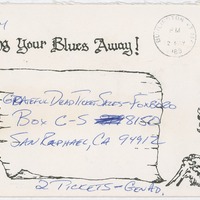 ng Your Blues Away!
PM
GRATEFUL DEAD TICKET SALES-FOXBORO
BOX C-S 8150
SAN RAPHAEL, CA 94912
2 TICKETS-GEN AD.